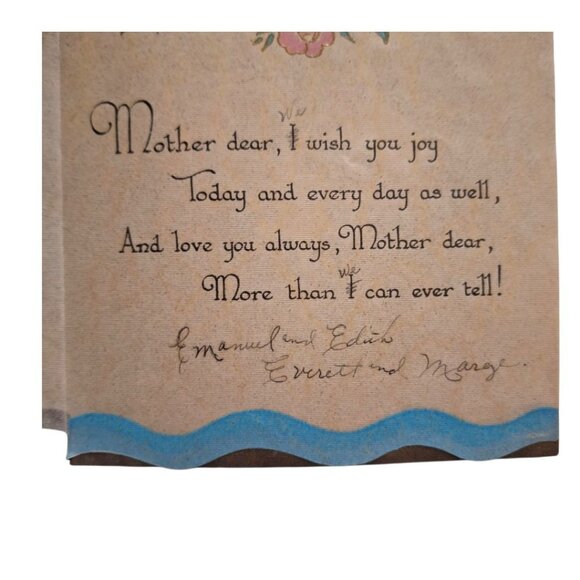 We
Mother dear, I wish you joy
Today and every day as well,
And love you always, Mother dear,
We
More than I can ever tell!
Emanuel and Edith
Everett and Marge.